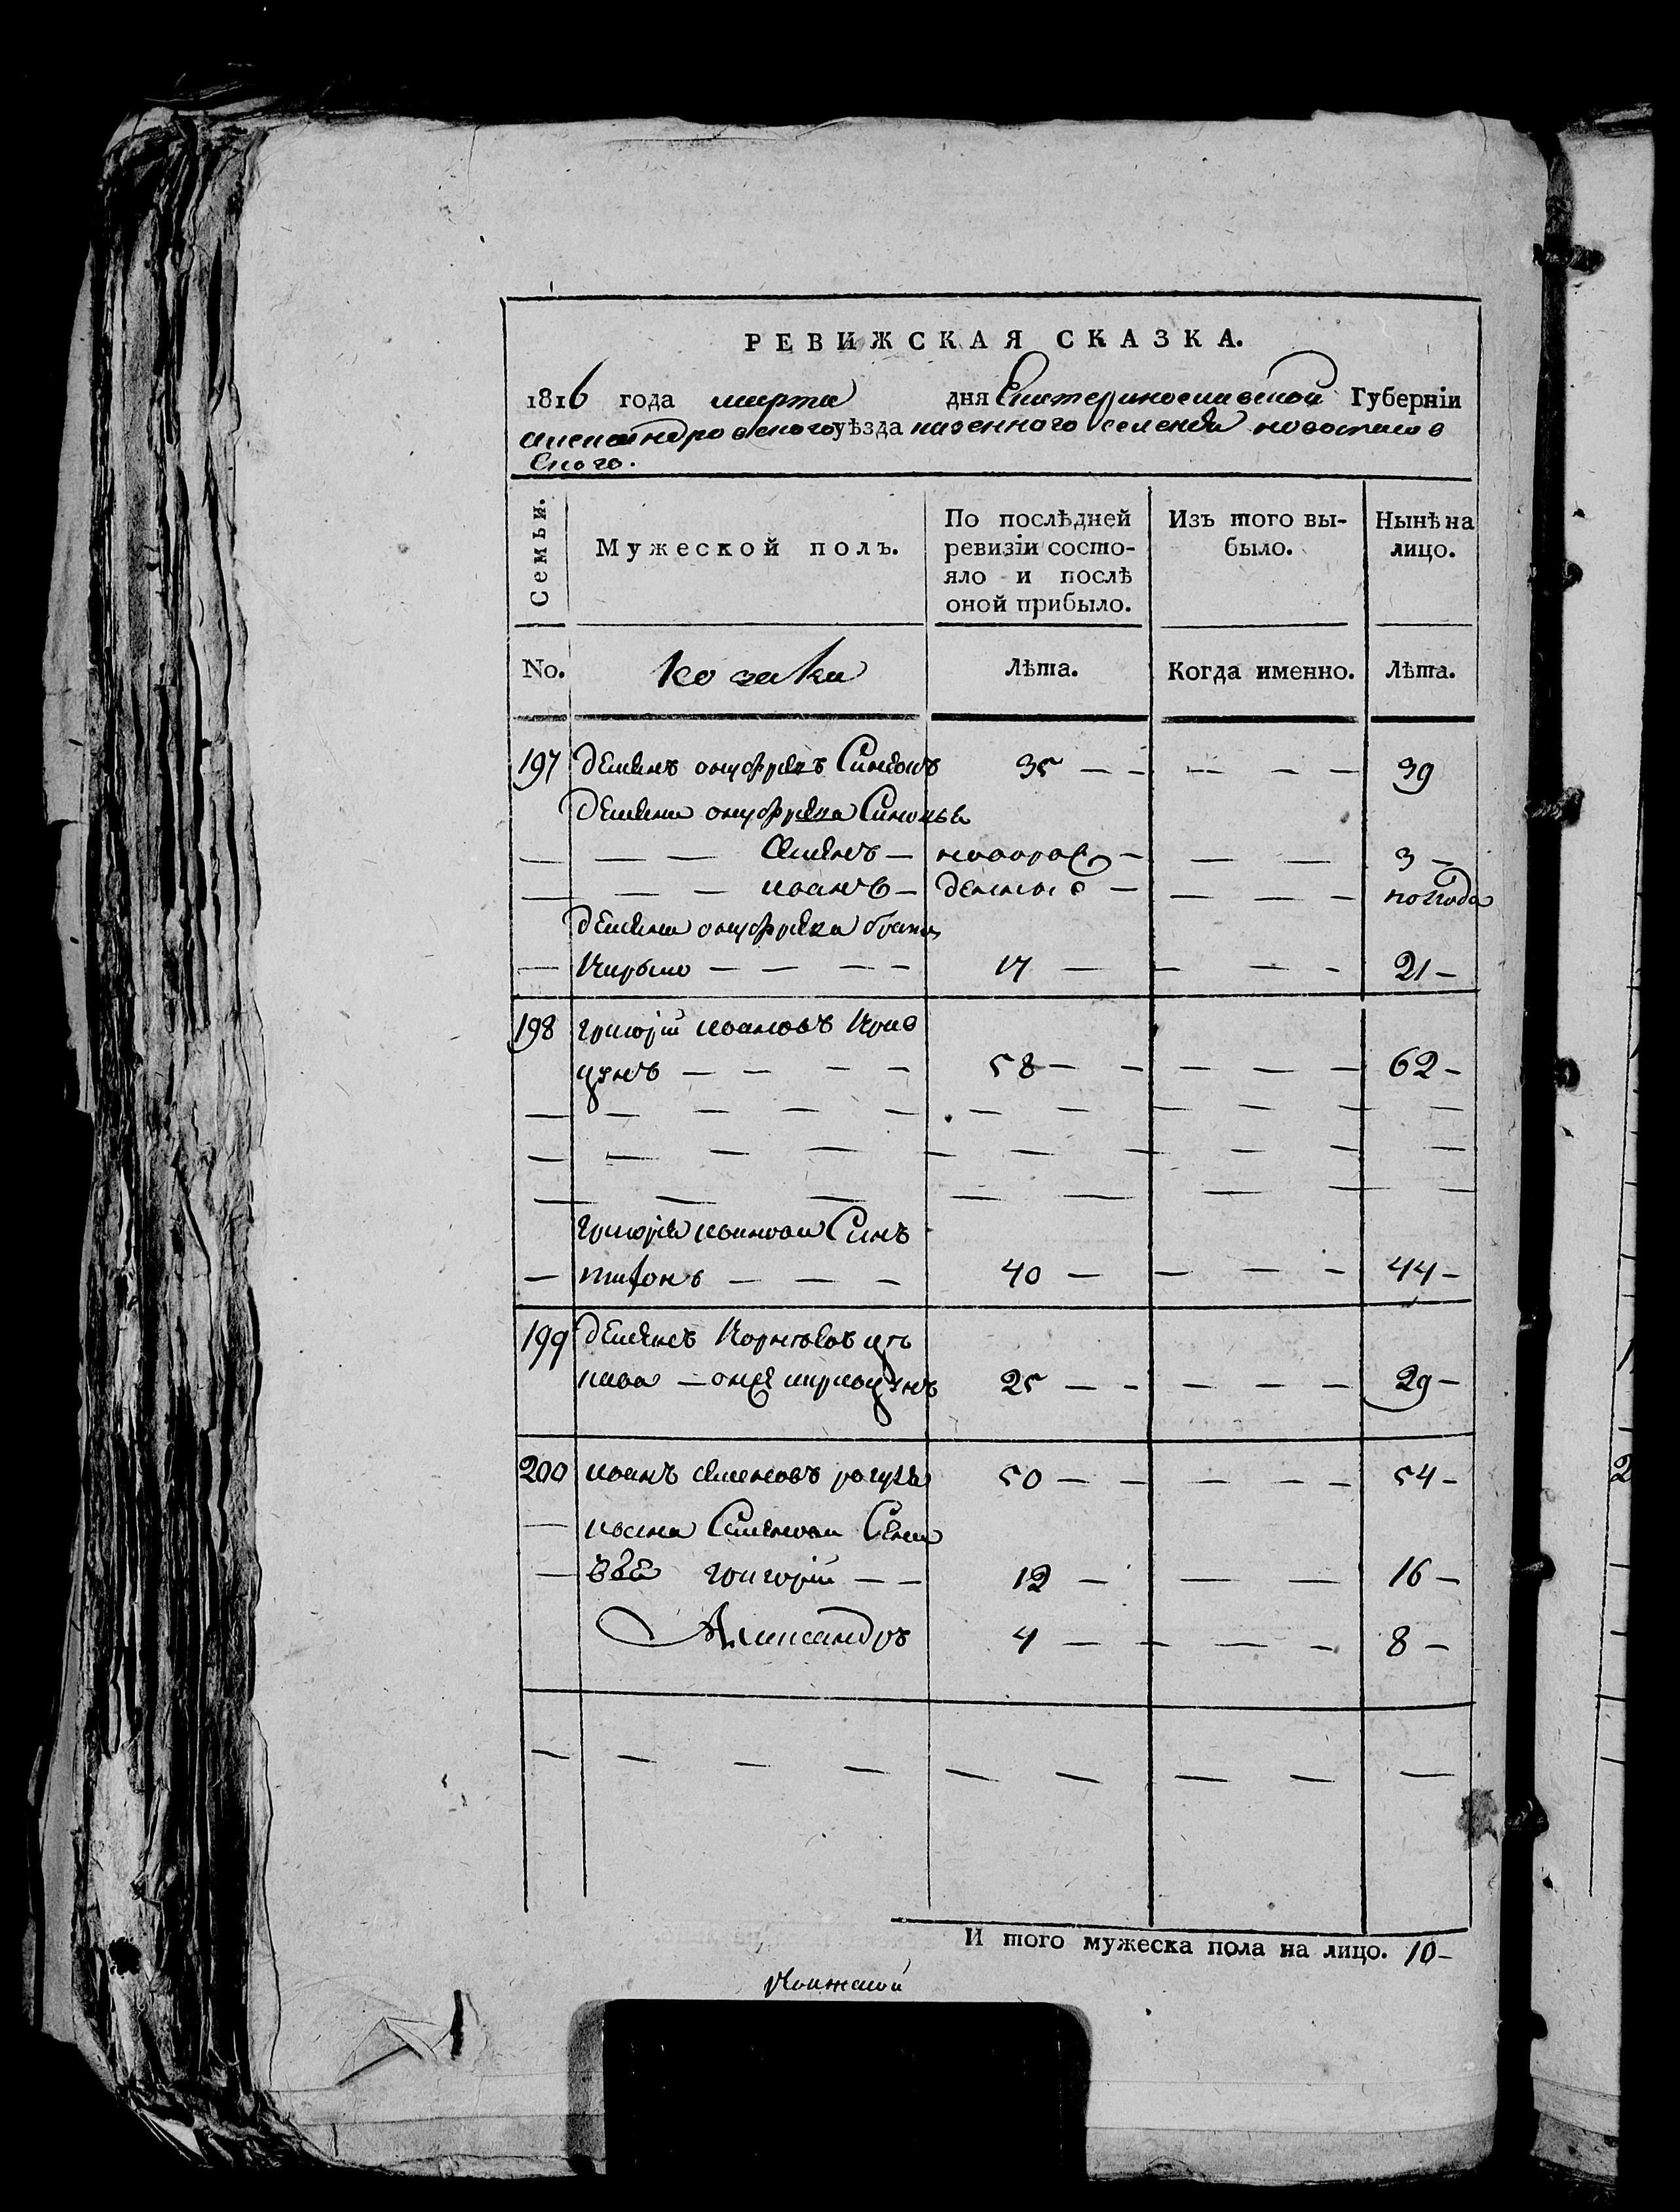 РЕВИЖСКАЯ СКАЗКА.
1816 года марта дня Екатеринославской Губерніи
александровского уѣзда казенного селенія новопавлов
ского.
Семьи. Мужеской полъ. По послѣдней ревизіи состояло и послѣ оной прибыло. Изъ того выбыло. Нынѣ на лицо.
No. козаки Лѣта. Когда именно. Лѣта.
197 демянъ онуфріевъ 35 — — — — — 39
демяна онуфріева
— — — Семенъ — новорож — — — 3 —
— — — иванъ — денные — — — — полгода
демяна онуфріева братъ
— Кирыло — — — — 17 — — — — 21 —
198 григорій ивановъ Крав
цунъ — — — — 58 — — — — — 62 —
— — — — — — — — — — —
— — — — — — — — — —
— — — — — — — —
григорія иванова Синъ
— тихонъ — — — 40 — — — — 44 —
199 демянъ Корнѣевъ
25 — — — — — 29 —
200 иванъ семеновъ 50 — — — — — 54 —
— ивана Семенова Сени
— григорій — — 12 — — — 16 —
Александръ 4 — — — — 8 —
— — — — — — — — —
И того мужеска пола на лицо. 10 —